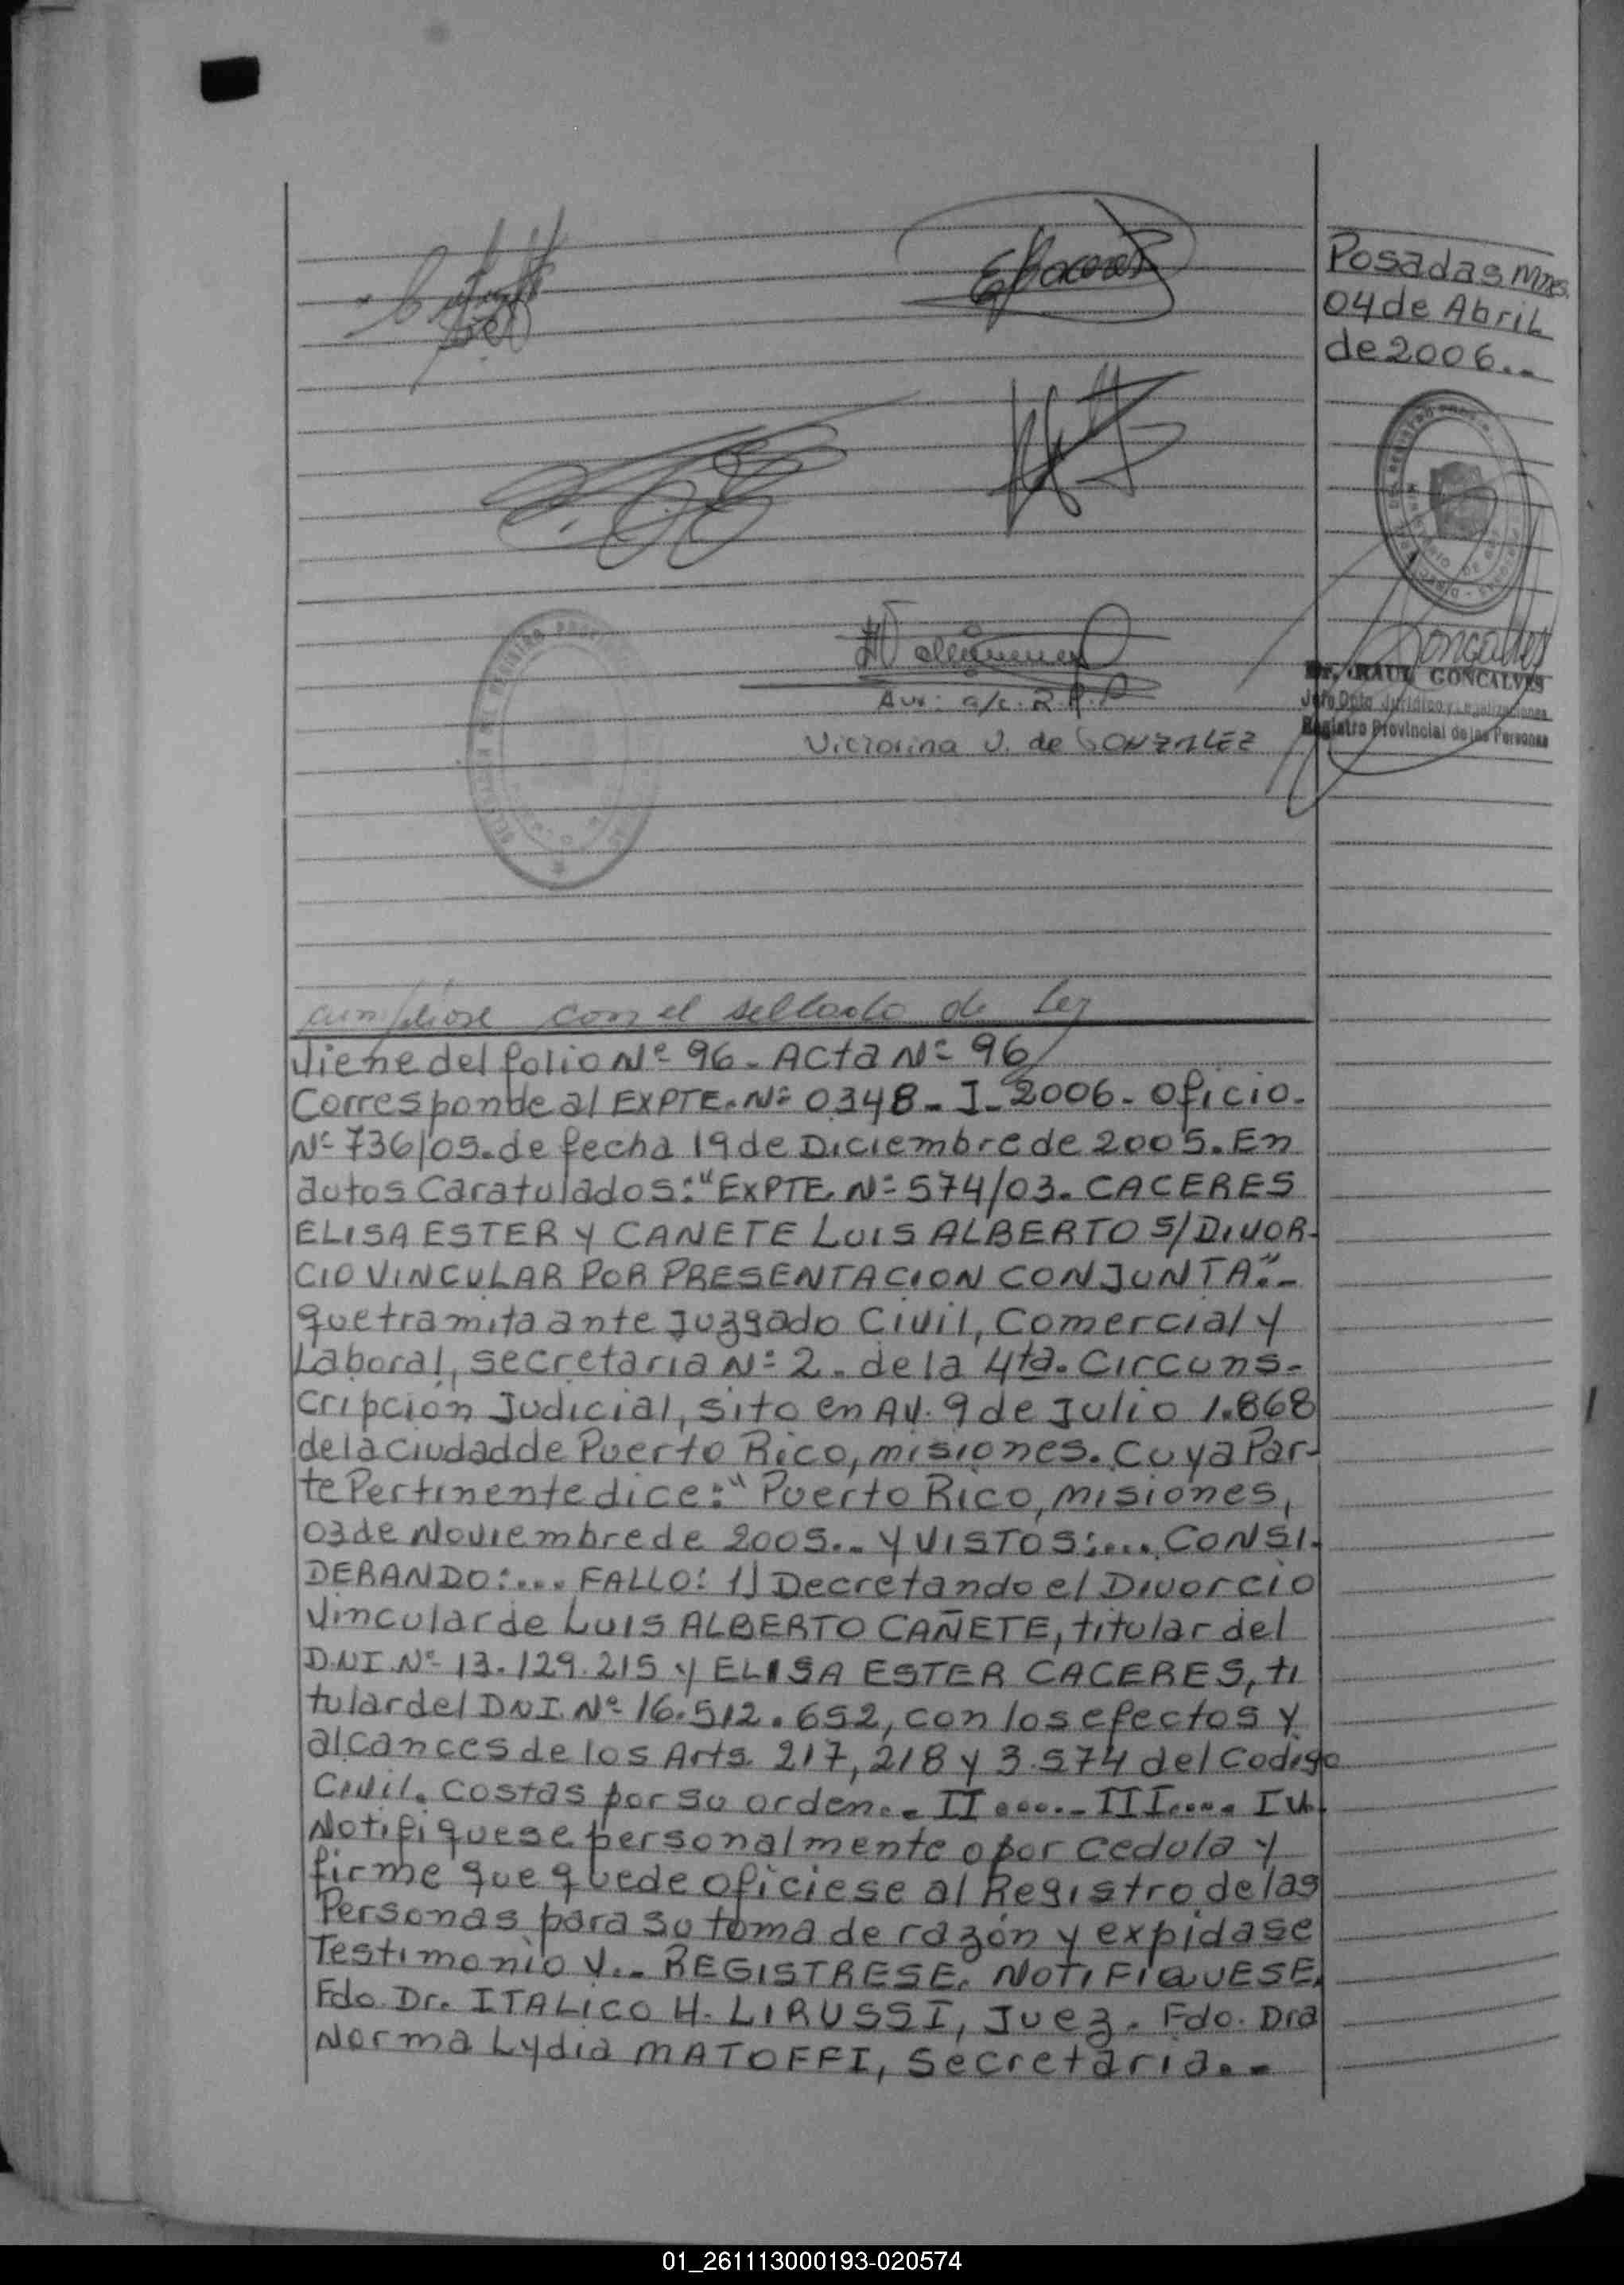 Posadas Mnes.
04 de Abril
de 2006..
Dr. RAUL GONCALVES
Jefe Dpto Jurídico y Legalizaciones
Registro Provincial de las Personas
Aux: a/c. R.P.P
Victorina V. de GONZALEZ
cumpliose con el sellado de Ley
Viene del folio Nº 96 - Acta Nº 96
Corresponde al EXPTE. Nº 0348 - I - 2006 - Oficio.
Nº 736/05. de fecha 19 de Diciembre de 2005. En
autos Caratulados: "EXPTE Nº 574/03. CACERES
ELISA ESTER Y CANETE LUIS ALBERTO S/DIVOR-
CIO VINCULAR POR PRESENTACION CONJUNTA".-
que tramita ante Juzgado Civil, Comercial y
Laboral, secretaria Nº 2. de la 4ta. Circuns-
cripción Judicial, sito en AV. 9 de Julio 1.868
de la Ciudad de Puerto Rico, misiones. Cuya Par-
te Pertinente dice: "Puerto Rico, misiones,
03 de Noviembre de 2005.. Y VISTOS:... CONSI-
DERANDO:... FALLO: 1) Decretando el Divorcio
Vincular de LUIS ALBERTO CAÑETE, titular del
D.N.I. Nº 13.129.215 y ELISA ESTER CACERES, ti
tular del D.N.I. Nº 16.512.652, con los efectos y
alcances de los Arts. 217, 218 y 3.574 del Codigo
Civil. Costas por su orden.. II ....- III..... IV.
Notifiquese personalmente o por Cedula y
firme que quede oficiese al Registro de las
Personas para su toma de razón y expidase
Testimonio V.. REGISTRESE. NOTIFIQUESE.
Fdo. Dr. ITALICO H. LIRUSSI, Juez. Fdo. Dra
Norma Lydia MATOFFI, Secretaria..
01_261113000193-020574